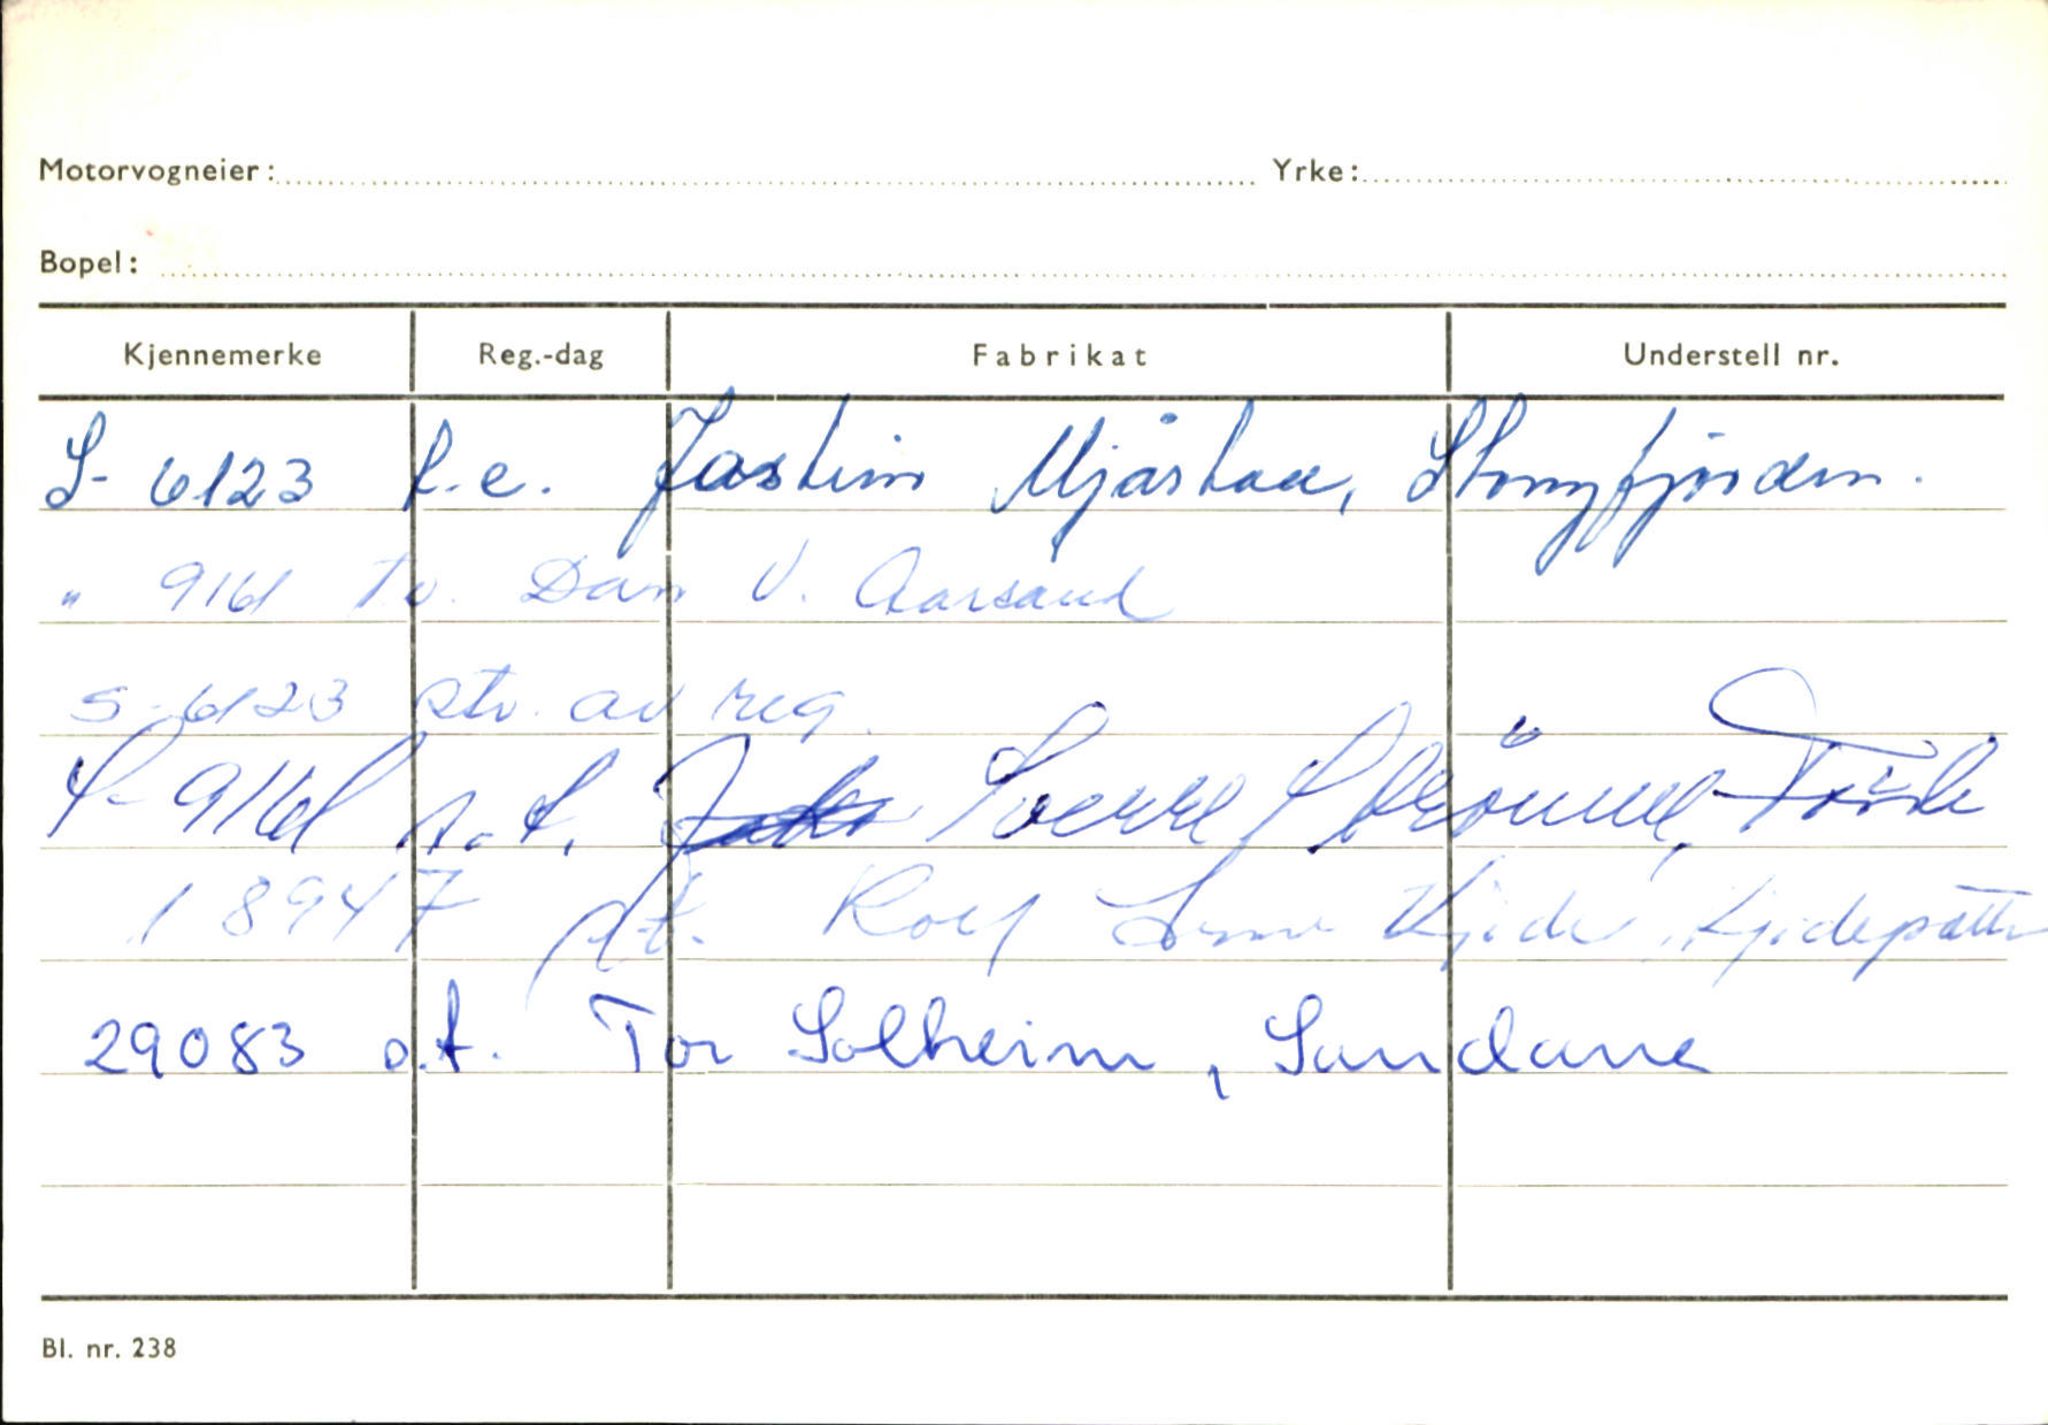 Motorvogneier: Yrke:
Bopel:
Kjennemerke Reg.-dag Fabrikat Understell nr.
S- 6123 f.e. Jostein Mjåstad, Stongfjorden.
" 9161 t.v. Dan V. Aarsand
S-6123 str. av reg.
S-9161 s.t. Sverre Førde
18947 s.t. Rolf Arne Kjide, Kjidepøtten
29083 o.t. Tor Solheim, Sandane
Bl. nr. 238